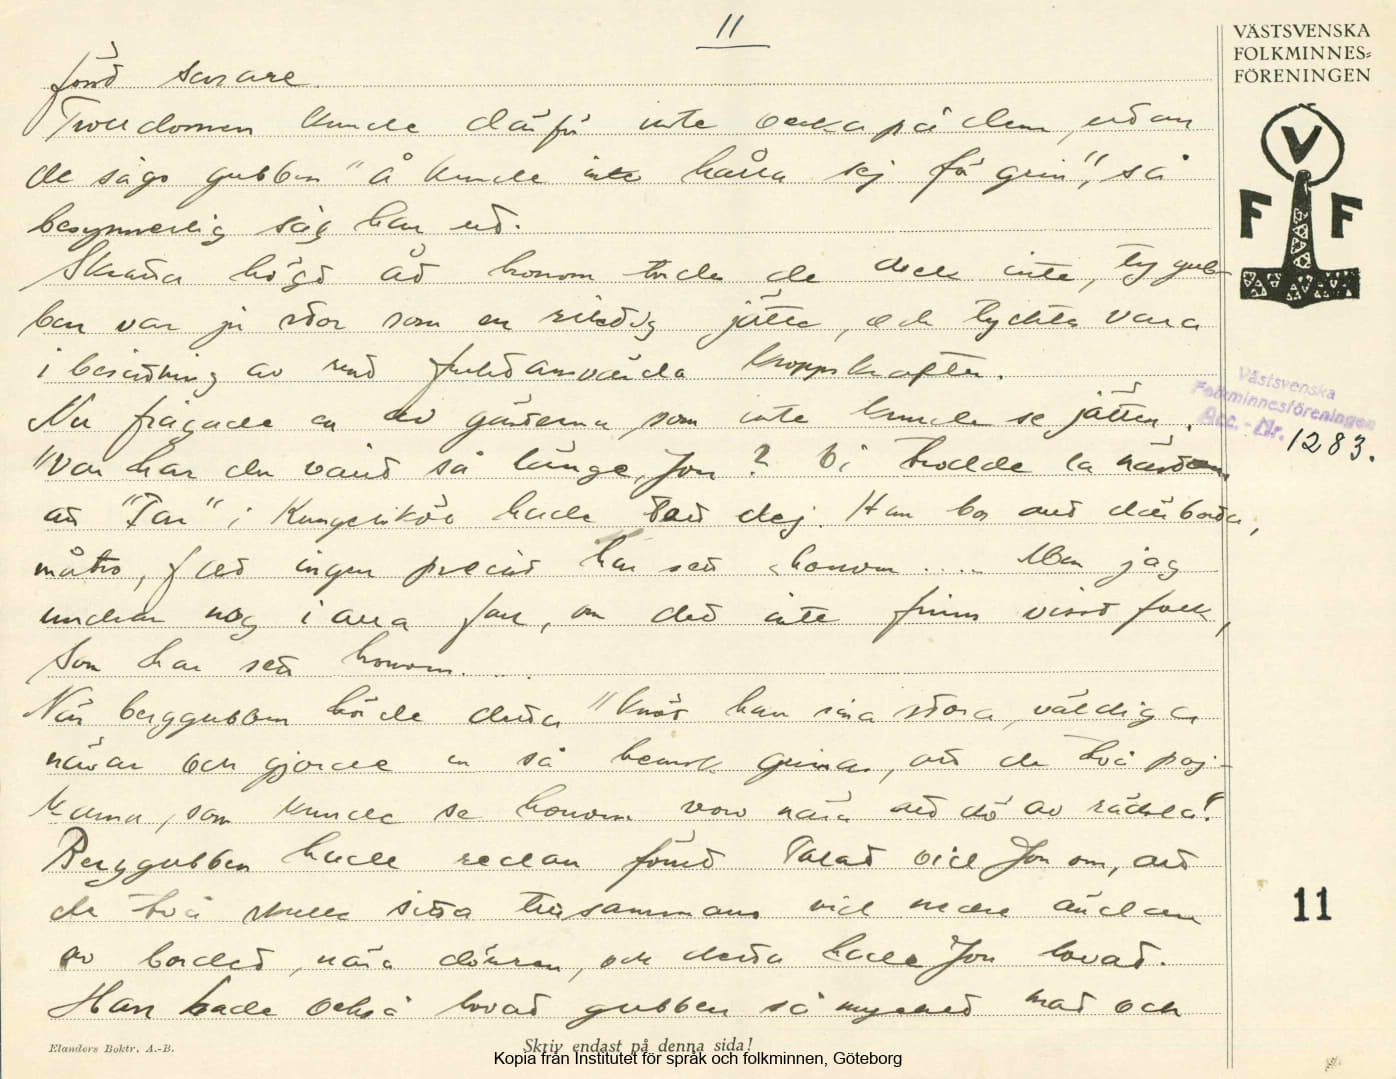 11
VÄSTSVENSKA
FOLKMINNES=
FÖRENINGEN
V
F F
förd svarare.
Trolldomen kunde därför inte verka på dem, utan
de sågo gubben "å kunde inte hålla sej för grin", så
besynnerlig såg han ut.
Skratta högt åt honom torde de dock inte, ty gub-
ben var ju stor som en riktig jätte, och tycktes vara
i besittning av rent fruktansvärda kroppskrafter.
Nu frågade en av gästerna, som inte kunde se jätten.
"Var har du varit så länge, Jon? Vi trodde la nästan,
att "Far" i Kungeliköv hade tatt dej. Han bor att där borta,
måtro, fast ingen precist har sett honom .... Men jag
undrar nog i alla fall, om det inte finns visst folk,
som har sett honom....
När berggubben hörde detta "knöt han sina stora, väldiga
nävar och gjorde en så hemsk grimas, att de två poj-
karna, som kunde se honom vorv nära att dö av rädsla!"
Berggubben hade redan förut talat vid Jon om, att
de två skulle sitta tillsammans vid nedre ändan
av bordet, nära dörren, och detta hade Jon lovat.
Han hade också lovat gubben så mycket mat och
Västsvenska
Folkminnesföreningen
Acc. - Nr. 1283.
11
Elanders Boktr. A.-B.
Skriv endast på denna sida!
Kopia från Institutet för språk och folkminnen, Göteborg